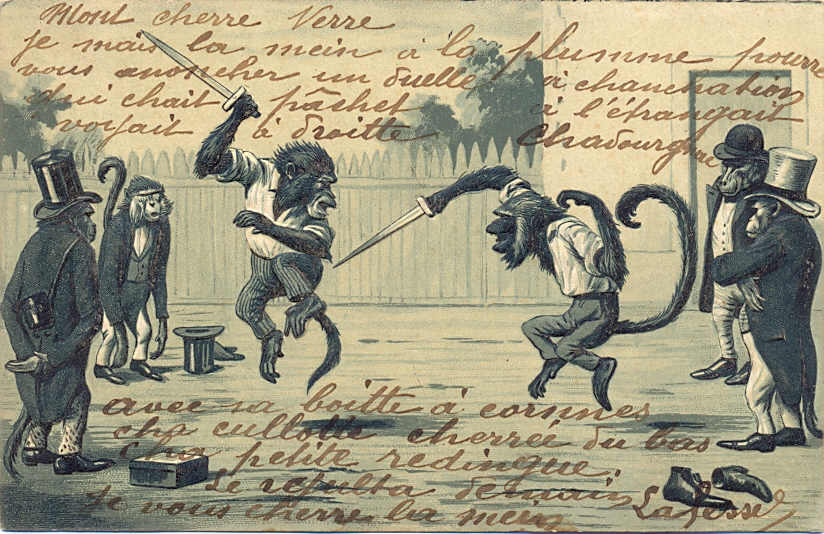 Mont cherre Verre
je mais la mein à la plumme pourre
vous anoncher un duelle à chanchation
qui chait pâshet à l'étrangait
voyait à droitte Chadourgne
avec sa boitte à cornnes
cha cullotte cherrée du bas
petite redingue.
Le résulta demain
Je vous cherre la mein Lafesse